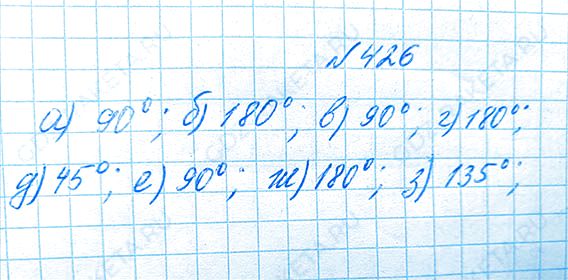 № 426
а) 90°; б) 180°; в) 90°; г) 180°;
д) 45°; е) 90°; ж) 180°; з) 135°;